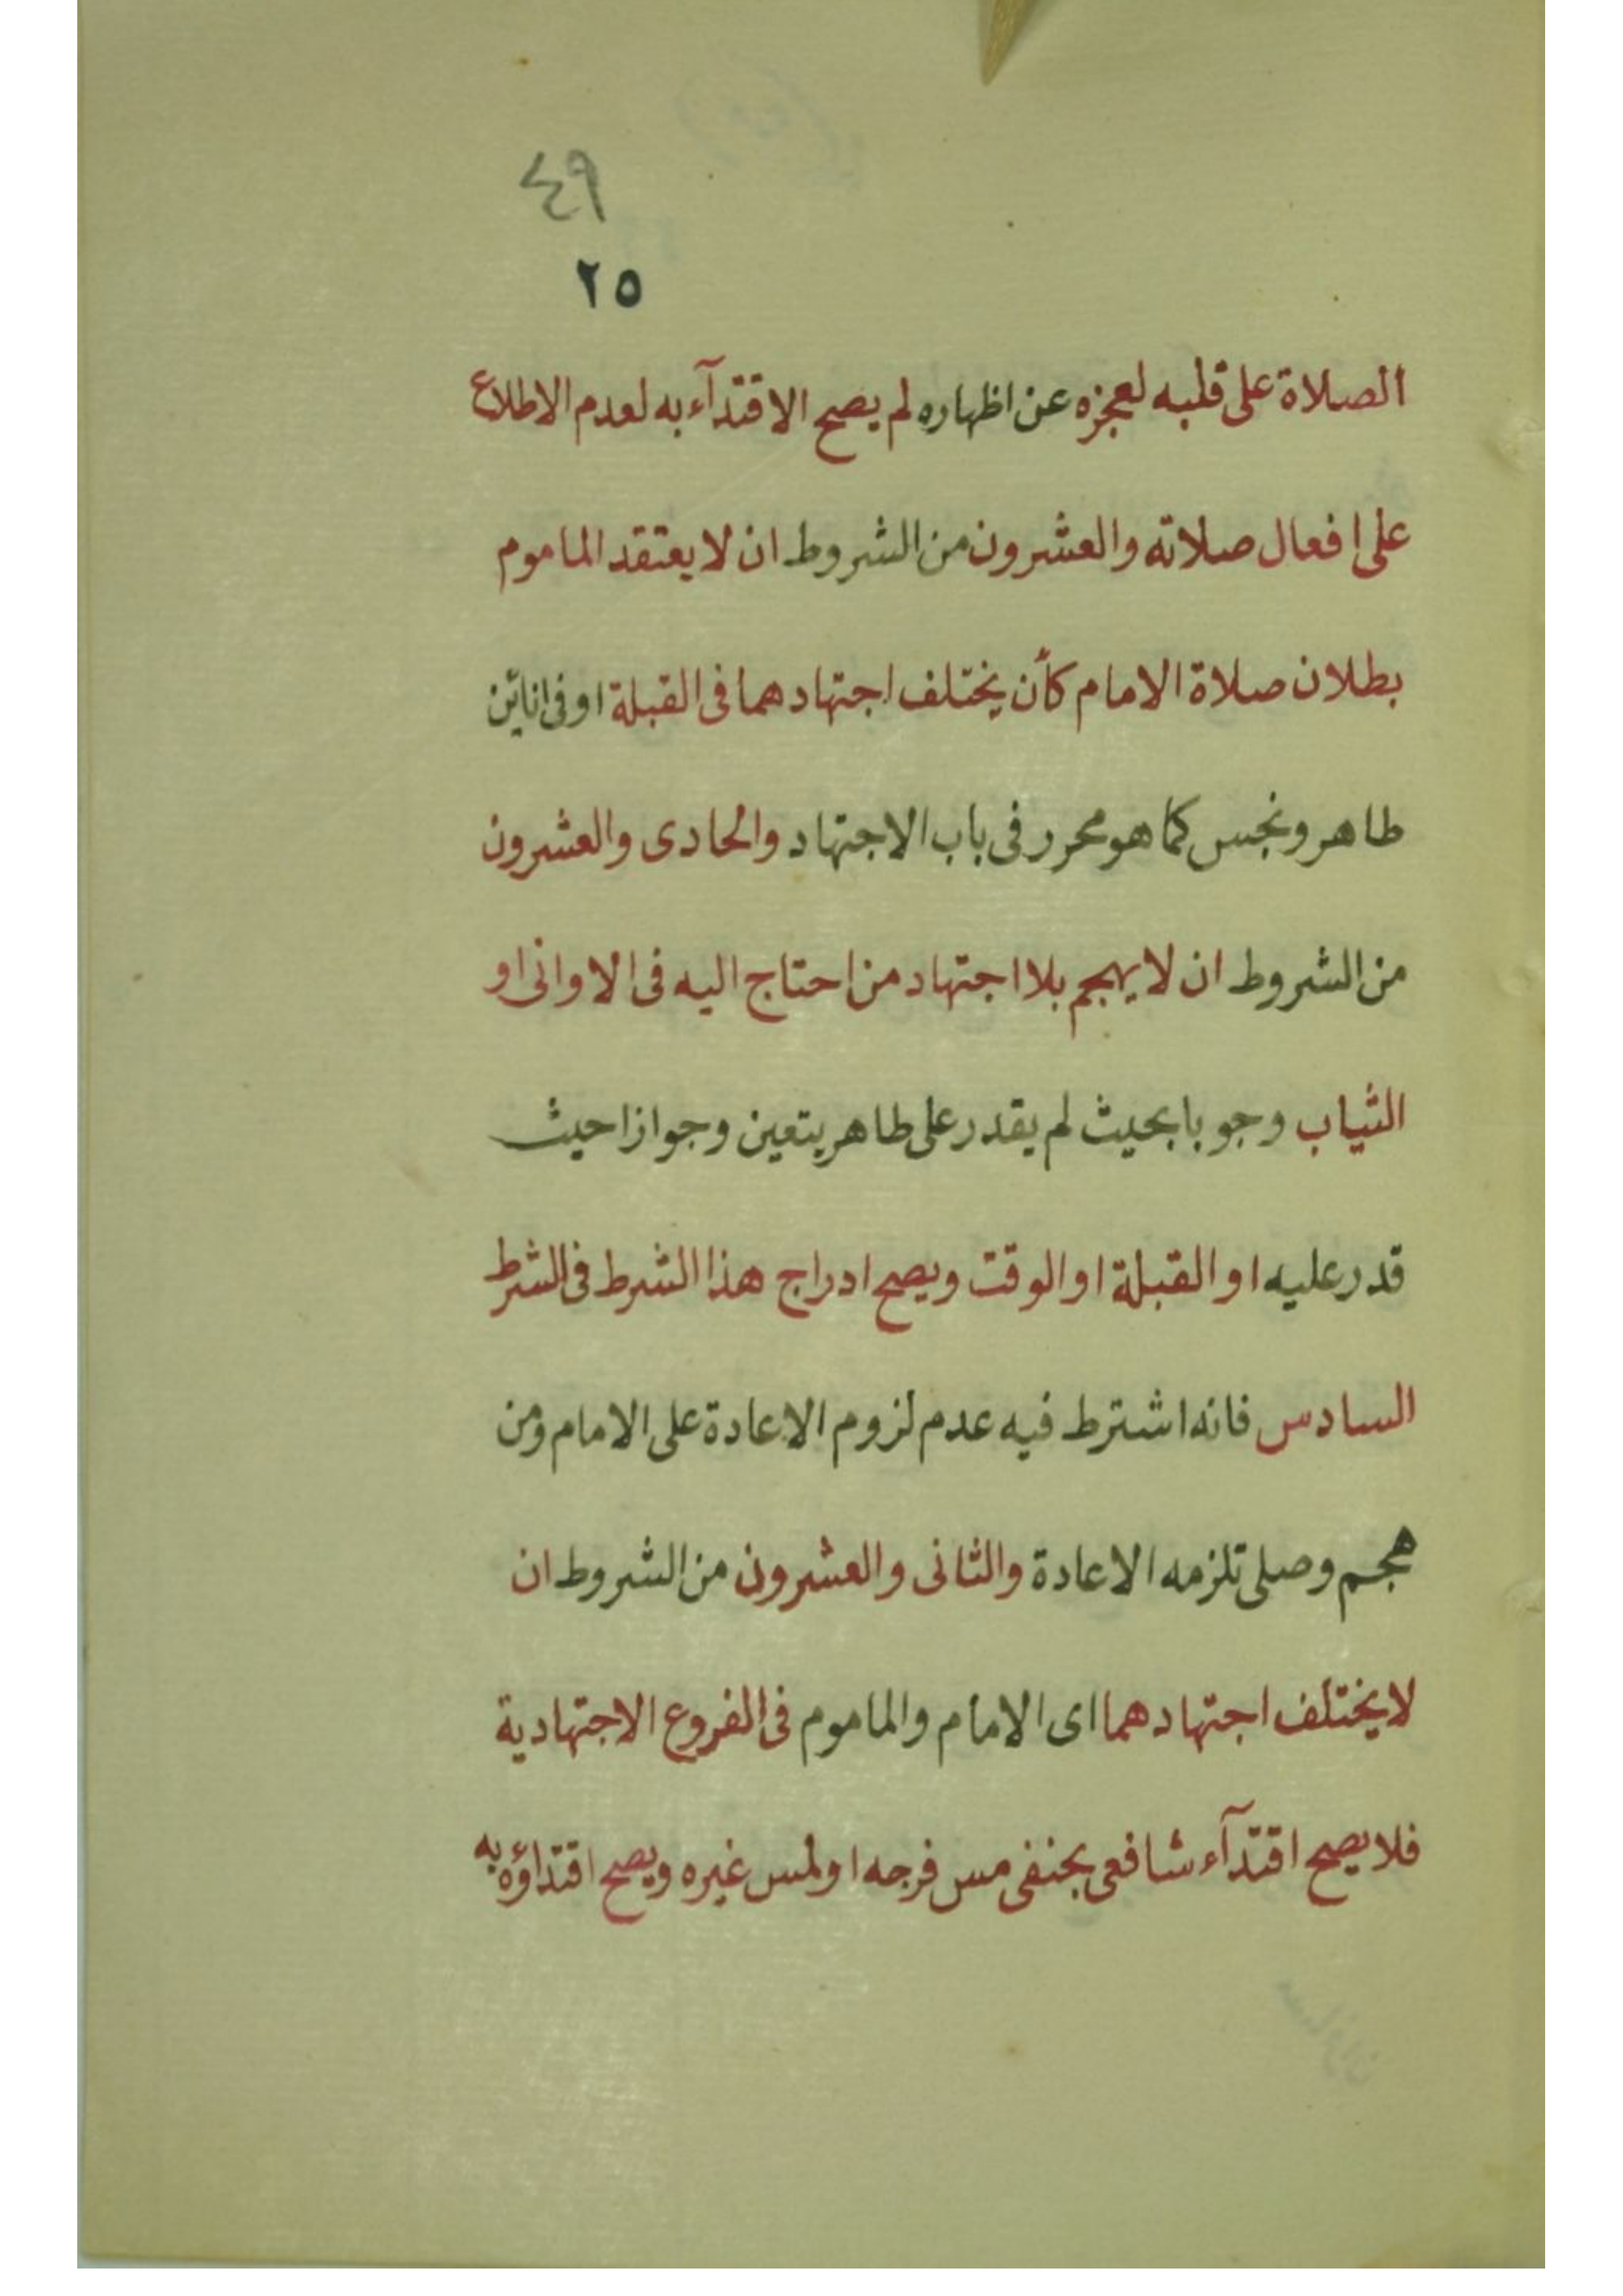 ٤٩
٢٥
الصلاة على قلبه لعجزه عن اظهاره لم يصح الاقتدآء به لعدم الاطلاع
على افعال صلاته والعشرون من الشروط ان لا يعتقد الماموم
بطلان صلاة الامام كأن يختلف اجتهادهما فى القبلة او فى انائين
طاهر ونجس كما هو محرر فى باب الاجتهاد والحادى والعشرون
من الشروط ان لا يهجم بلا اجتهاد من احتاج اليه فى الاوانى او
الثياب وجوبا بحيث لم يقدر على طاهر يتعين وجوازا حيث
قدر عليه او القبلة او الوقت ويصح ادراج هذا الشرط فى الشرط
السادس فانه اشترط فيه عدم لزوم الاعادة على الامام ومن
هجم وصلى تلزمه الاعادة والثانى والعشرون من الشروط ان
لا يختلف اجتهادهما اى الامام والماموم فى الفروع الاجتهادية
فلا يصح اقتدآء شافعى بحنفى مس فرجه او لمس غيره ويصح اقتداؤه به